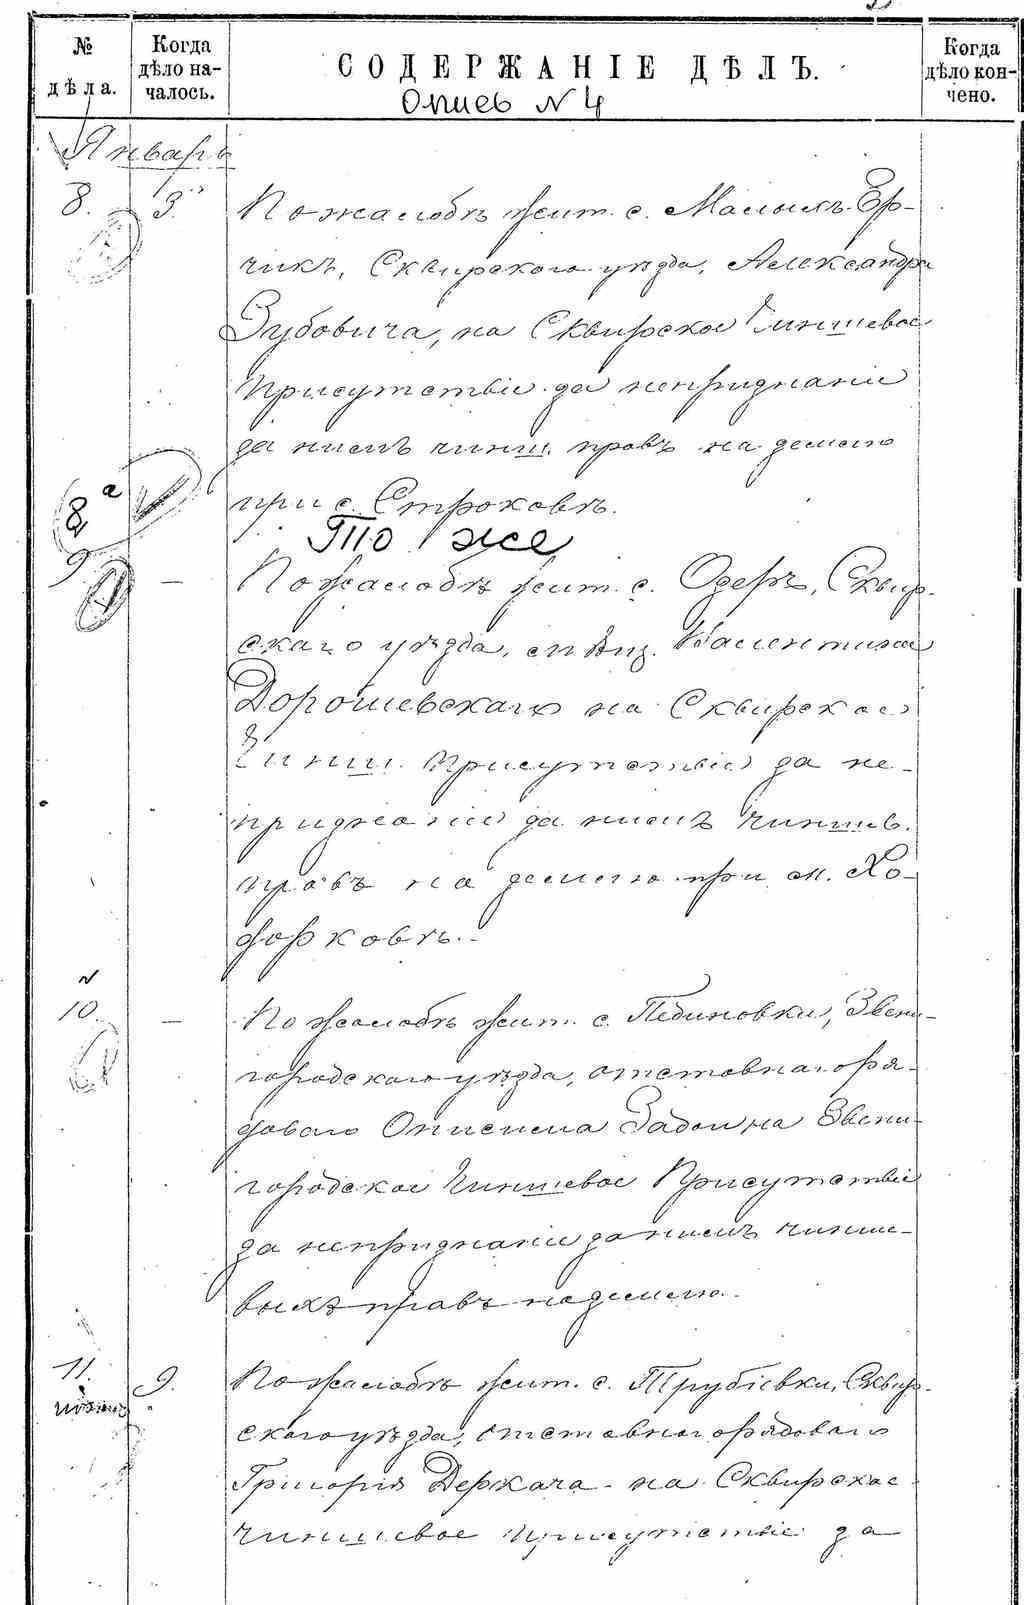 № дѣла.
Когда дѣло на-
чалось.
СОДЕРЖАНІЕ ДѢЛЪ.
Когда дѣло кон-
чено.
Опись N 4
Январь
8. 3.
По жалобѣ жит. с. Малыхъ-Ер-
чикъ, Сквирскаго уѣзда, Александра
Зубовича, на Сквирское Чиншевое
Присутствіе за непризнаніе
за нимъ чинш. правъ на землю
при с. Строковѣ.
8а То же
9 — По жалобѣ жит. с. Озеръ, Сквир-
скаго уѣзда, мѣщ. Валентина
Дорошевскаго на Сквирское
Чинш. Присутствіе за не-
признаніе за нимъ чиншев.
правъ на землю при м. Хо-
дорковѣ.
10. — По жалобѣ жит. с. Пединовки, Звени-
городскаго уѣзда, отставнаго ря-
доваго Онисима Задои на Звени-
городское Чиншевое Присутствіе
за непризнаніе за нимъ чинше-
выхъ правъ на землю.
11. 9. По жалобѣ жит. с. Трубіевки, Сквир-
скаго уѣзда, отставнаго рядоваго
Григорія Деркача на Сквирское
Чиншевое Присутствіе за